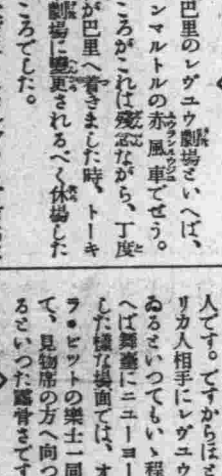 巴里のレヴユウ劇場といへば、
ンマルトルの赤風車でせう。
ころがこれは殘念ながら、丁度
が巴里へ着きました時、トーキ
劇場に變更されるべく休場した
ころでした。
人です。ですからほ
リカ人相手にレヴユウ
ゐるといつてもいゝ程
へば舞臺にニユーヨー
した樣な場面では、オ
ラ・ピットの樂士一同
て、見物席の方へ向つ
るといつた露骨さです